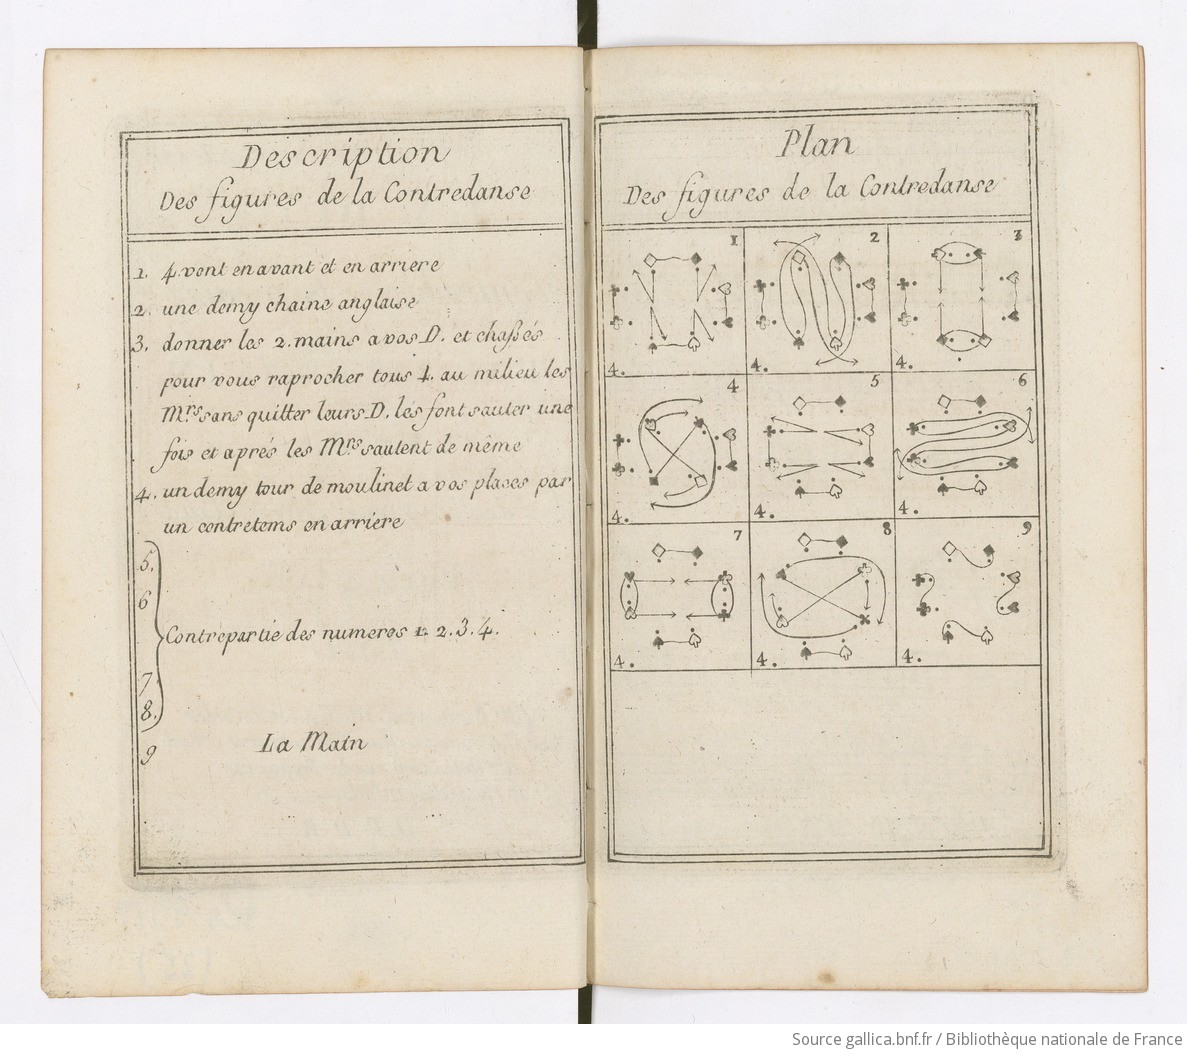 Description
Des figures de la Contredanse
1. 4. vont en avant et en arriere
2. une demy chaine anglaise
3. donner les 2. mains a vos D. et chaſsés
pour vous raprocher tous 4. au milieu les
Mrs sans quitter leurs D. les font sauter une
fois et aprés les Mrs sautent de même
4. un demy tour de moulinet a vos plases par
un contretems en arriere
5.
6
Contrepartie des numeros 1. 2. 3. 4.
7
8.
9 La Main
Plan
Des figures de la Contredanse
1 2 3
4. 4. 4.
4 5 6
4. 4. 4.
7 8 9
4. 4. 4.
Source gallica.bnf.fr / Bibliothèque nationale de France